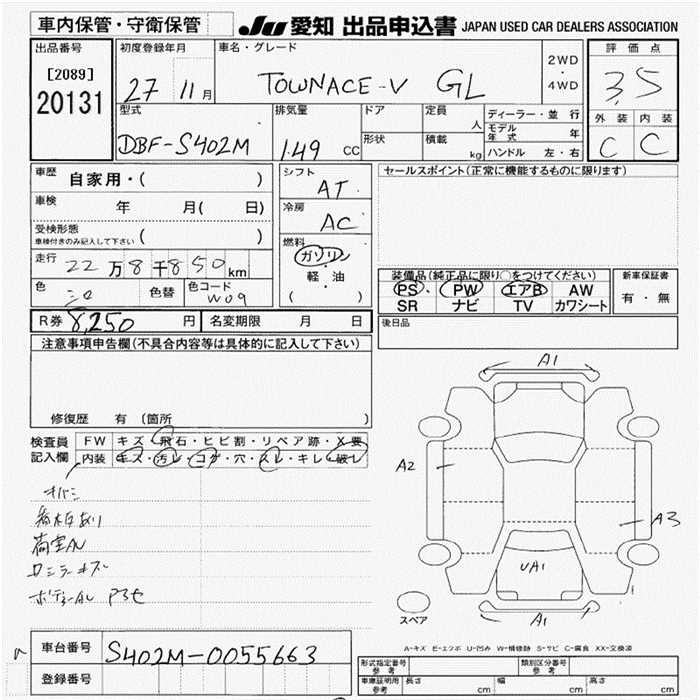 車内保管・守衛保管
JU 愛知 出品申込書 JAPAN USED CAR DEALERS ASSOCIATION
出品番号
[2089]
20131
初度登録年月
27 11月
車名・グレード
TOWNACE-V GL
2WD
・
4WD
評価点
3.5
外装 内装
C C
型式
DBF-S402M
排気量
1.49 CC
ドア
形状
定員
人
積載
kg
ディーラー・並行
モデル年式 年
ハンドル 左・右
車歴
自家用・( )
車検
年 月( 日)
受検形態
車検付きのみ記入して下さい ( )
走行
22万8千850km
色
シロ
色替
色コード
W09
シフト
AT
冷房
AC
燃料
ガソリン
・
軽・油
( )
セールスポイント(正常に機能するものに限ります)
装備品(純正品に限り○をつけてください)
PS PW エアB AW
SR ナビ TV カワシート
新車保証書
有・無
後日品
R券 8,250 円
名変期限 月 日
注意事項申告欄(不具合内容等は具体的に記入して下さい)
修復歴 有 (箇所 )
検査員
記入欄
FW キズ・飛石・ヒビ割・リペア跡・X要
内装 キズ・汚レ・コゲ・穴・スレ・キレ・破レ
看板あり
A1
A2
A3
UA1
A1
スペア
A-キズ E-エクボ U-凹み W-補修跡 S-サビ C-腐食 XX-交換済
車台番号
S402M-0055663
登録番号
形式指定番号
参考
類別区分番号
参考
車庫証明用
参考
長さ cm
幅 cm
高さ cm